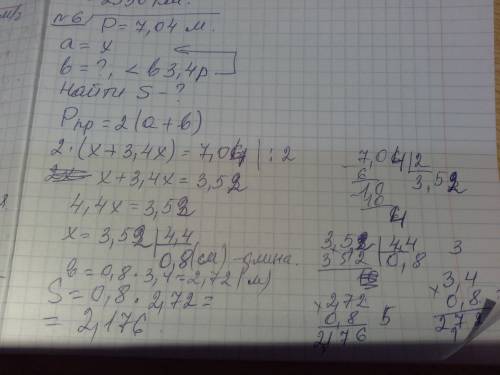 №6 P = 7,04 м.
a = x
в = ?, < в 3,4 р
Найти S - ?
Pпр = 2(a + в)
2·(x + 3,4x) = 7,04 | : 2
x + 3,4x = 3,52
4,4x = 3,52
x = 3,52 | 4,4
0,8 (см) - длина.
в = 0,8 · 3,4 = 2,72 (м)
S = 0,8 · 2,72 =
= 2,176
7,04 | 2
6 3,52
10
10
4
3,52 | 4,4
352 0,8
2,72
× 0,8
2,176
5
3
3,4
× 0,8
2,72